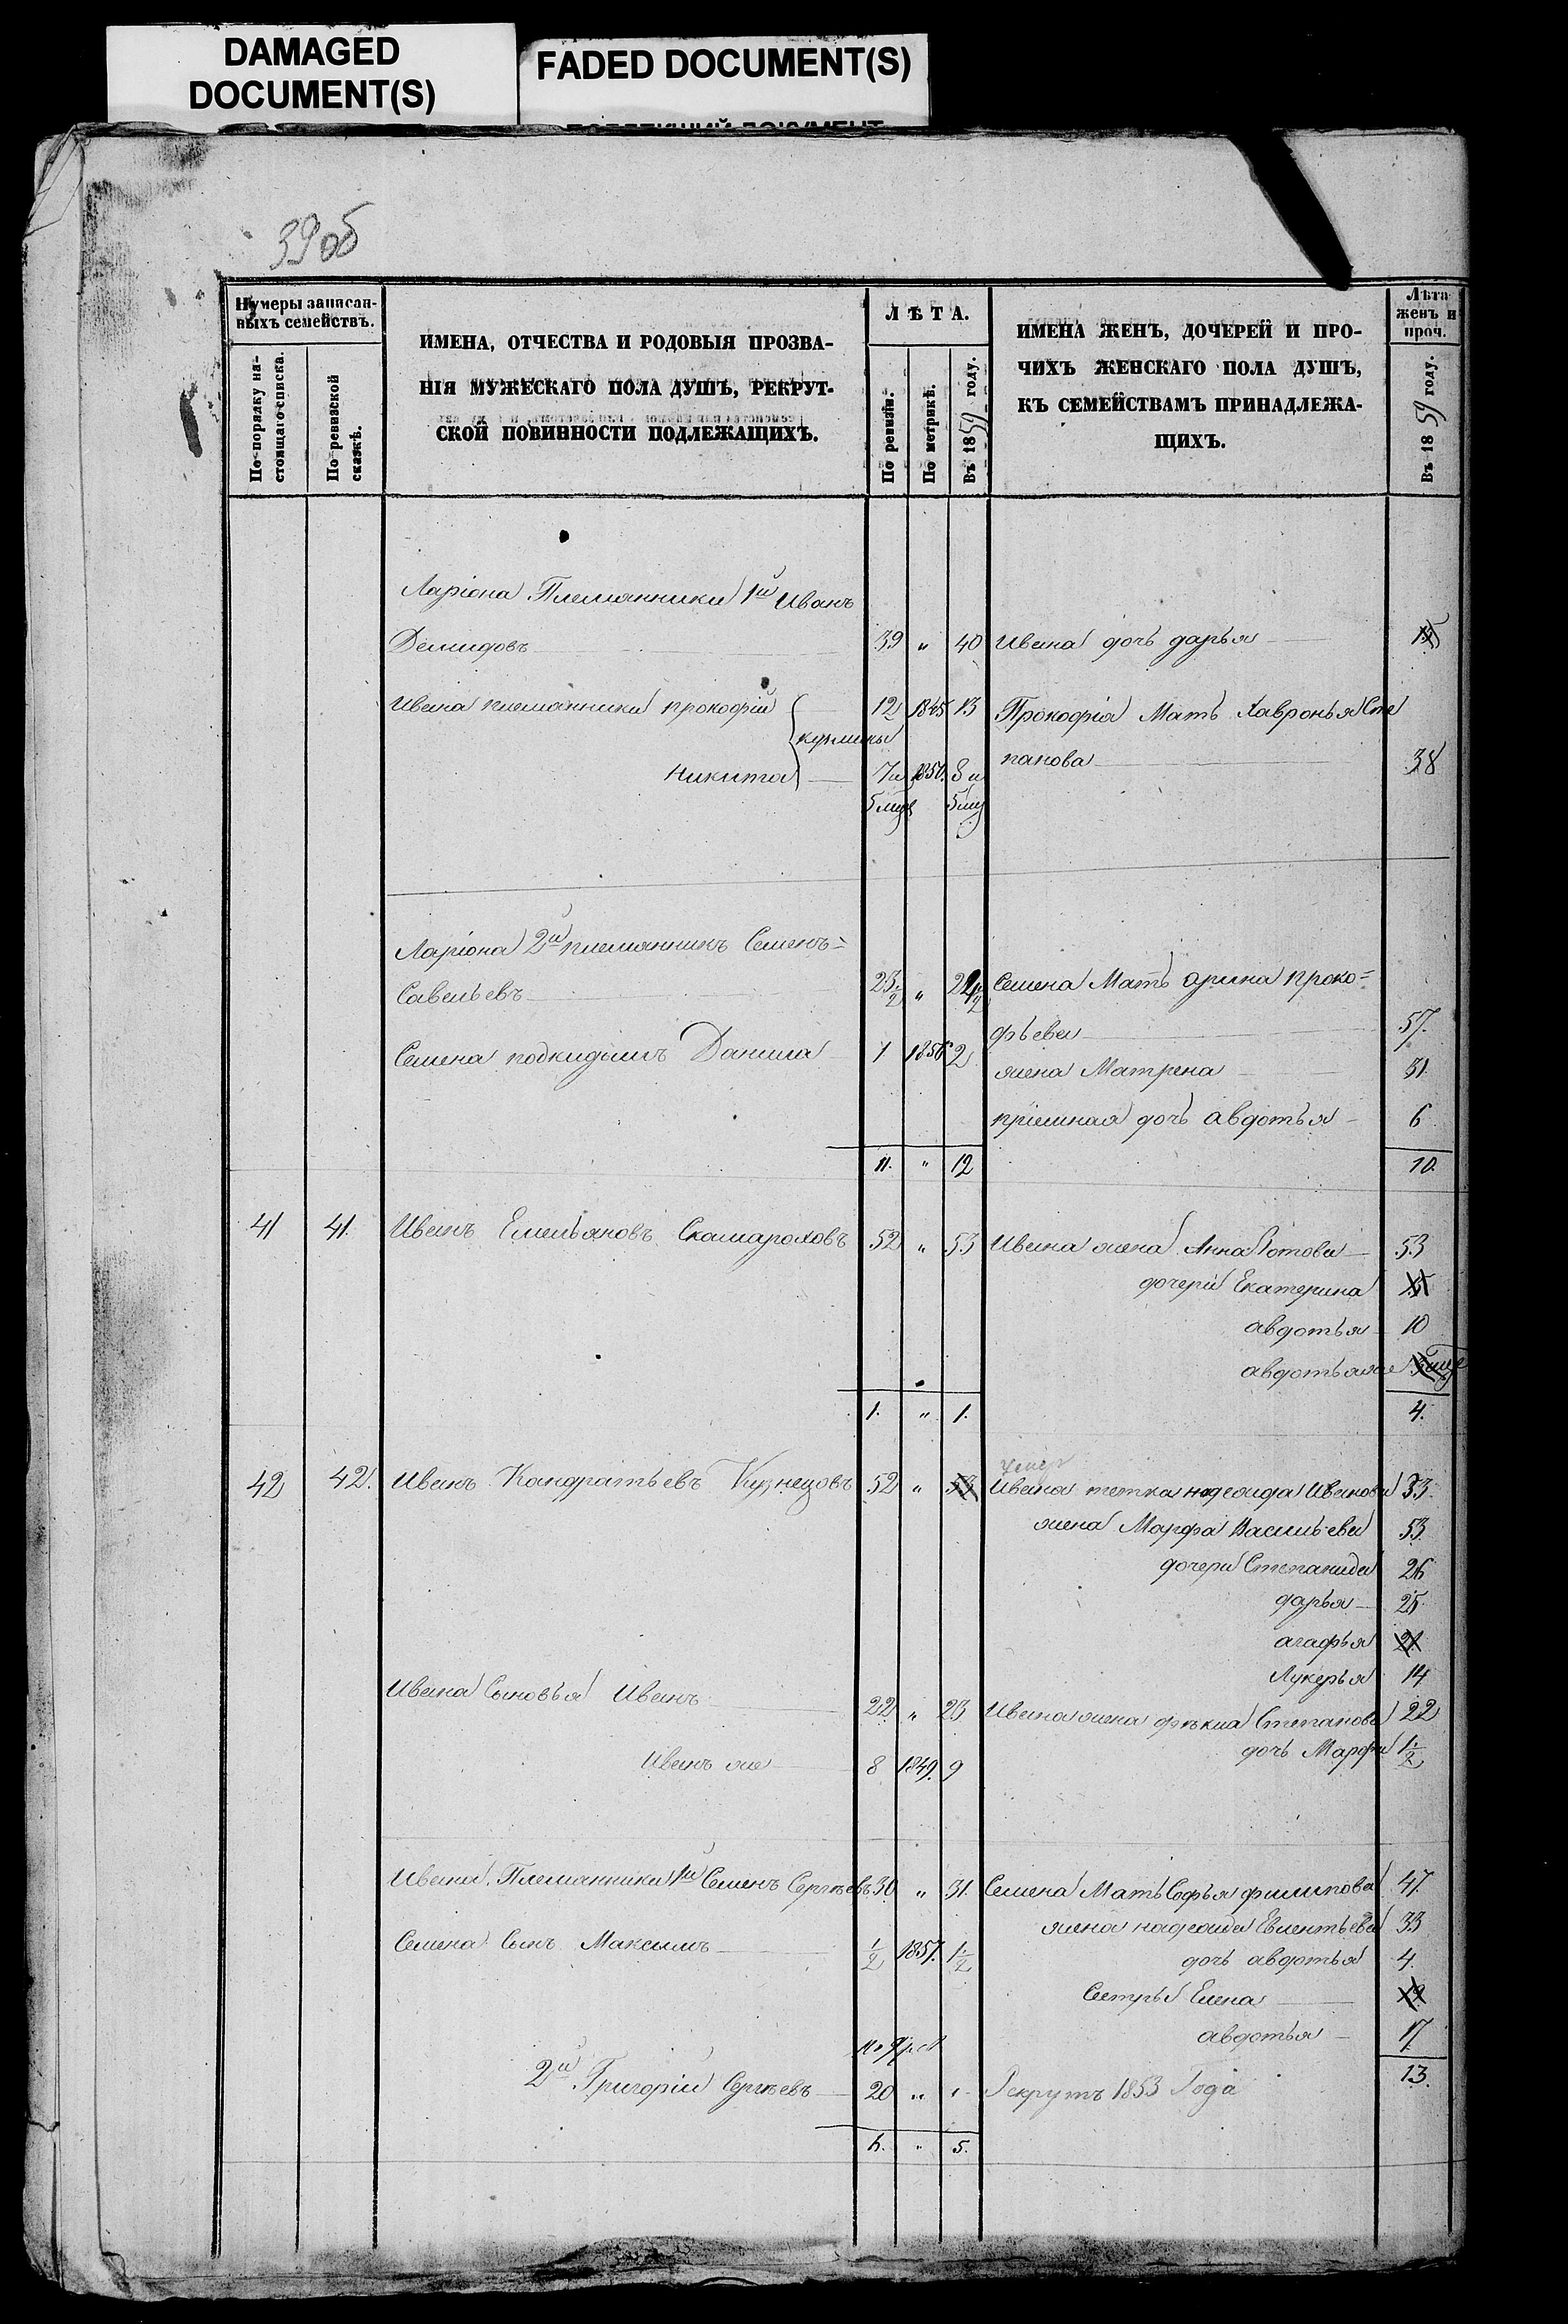 DAMAGED
DOCUMENT(S)
FADED DOCUMENT(S)
39 об
Нумеры записан-
ныхъ семействъ.
По порядку на-
стоящаго списка.
По ревизской
сказкѣ.
ИМЕНА, ОТЧЕСТВА И РОДОВЫЯ ПРОЗВА-
НІЯ МУЖЕСКАГО ПОЛА ДУШЪ, РЕКРУТ-
СКОЙ ПОВИННОСТИ ПОДЛЕЖАЩИХЪ.
ЛѢТА.
По ревизіи.
По метрикѣ.
Въ 1859 году.
ИМЕНА ЖЕНЪ, ДОЧЕРЕЙ И ПРО-
ЧИХЪ ЖЕНСКАГО ПОЛА ДУШЪ,
КЪ СЕМЕЙСТВАМЪ ПРИНАДЛЕЖА-
ЩИХЪ.
Лѣта
женъ и
проч.
Въ 1859 году.
Ларіона Племянники 1й Иванъ
Демидовъ 39 „ 40 Ивана дочь дарья 15
Ивана племянники прокофій 12 1845 13 Прокофія Мать Хавронья Сте
кузмины
панова 38
Никита 7и 1850. 8 и
5 мцв 5 мц
Ларіона 2й племянникъ Семенъ
Савельевъ 23½ „ 24½ Семена Мать арина проко=
фьева 57.
Семена подкидышъ Данила 1 1856 2
жена Матрена 31.
пріемная дочь авдотья 6
11. „ 12 10.
41 41. Иванъ Емельяновъ Скамароховъ 52 „ 53 Ивана жена Анна Зотова 53
дочери Екатерина
авдотья 10
авдотьяже
1. „ 1. 4.
42 42. Иванъ Кандратьевъ Кузнецовъ 52 „ 53 Ивана тетка надежда Иванова 33.
жена Марфа Васильева 53.
дочери Степанида 26
дарья 25
агафья 21
Лукерья 14
Ивана Сыновья Иванъ 22 „ 23 Ивана жена фекла Степанова 22
дочь Марфа 1½
Иванъ же 8 1849. 9
Ивана Племянники 1й Семенъ Сергѣевъ 30 „ 31. Семена Мать Софья филипова 47.
жена надежда Евлентьева 33
Семена Сынъ Максимъ ½ 1857. 1½ дочь авдотья 4.
Сестры Елена 19
авдотья 17
13.
2й Григорій Сергѣевъ 20 „ Рекрутъ 1853 Года
5.